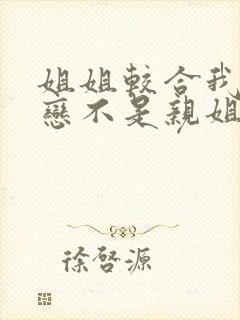 姐姐較合我
戀不是親姐
徐啓源